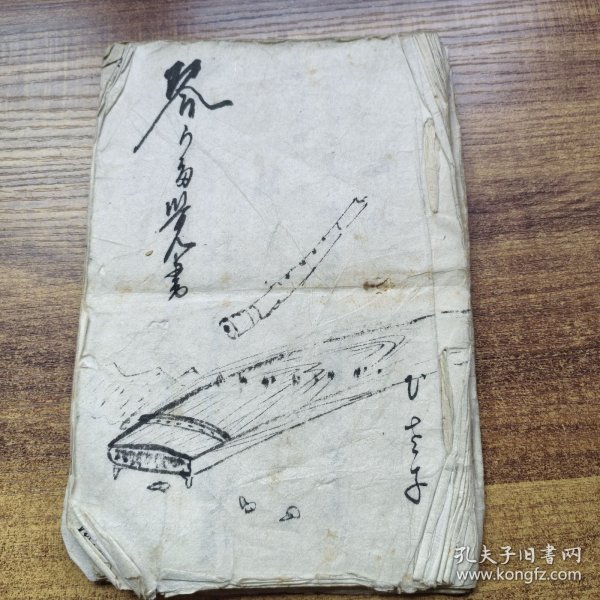 琴うた覚書
ひさ子
孔夫子旧书网
www.kongfz.com